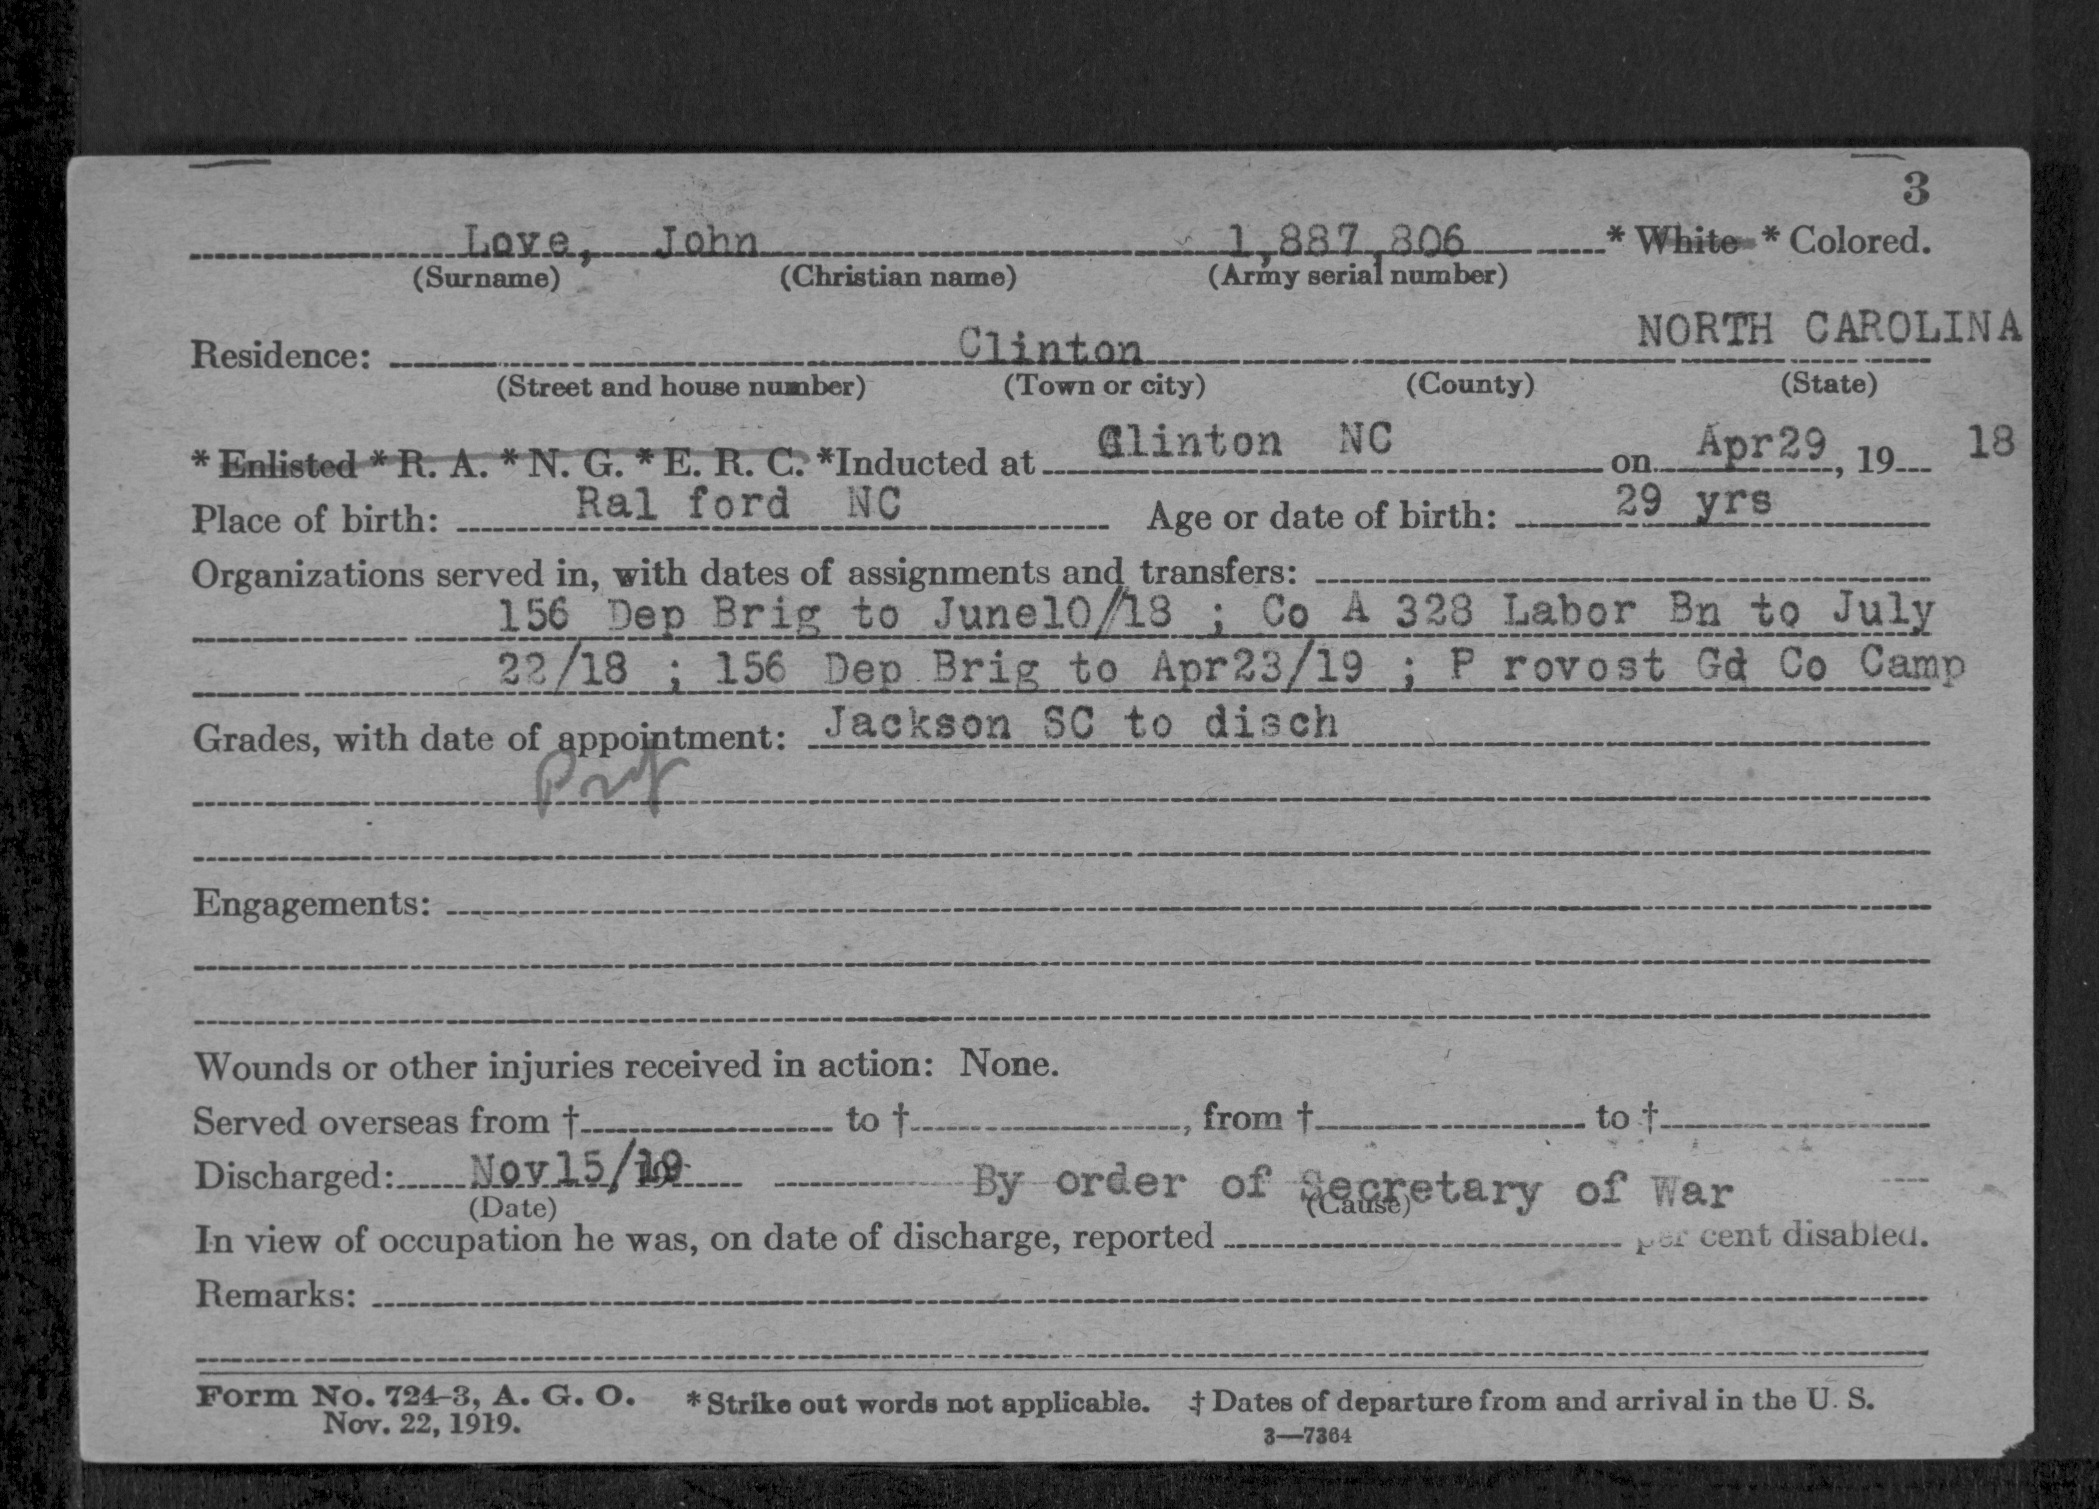 3
Love, John 1,887,806 * White * Colored.
(Surname) (Christian name) (Army serial number)
Residence: Clinton NORTH CAROLINA
(Street and house number) (Town or city) (County) (State)
* Enlisted * R. A. * N. G. * E. R. C. *Inducted at Clinton NC on Apr29, 19 18
Place of birth: Ral ford NC Age or date of birth: 29 yrs
Organizations served in, with dates of assignments and transfers:
156 Dep Brig to June10/18 ; Co A 328 Labor Bn to July
22/18 ; 156 Dep Brig to Apr23/19 ; P rovost Gd Co Camp
Grades, with date of appointment: Jackson SC to disch
Pvt
Engagements:
Wounds or other injuries received in action: None.
Served overseas from † to †, from † to †
Discharged: Nov15/19 By order of Secretary of War
(Date) (Cause)
In view of occupation he was, on date of discharge, reported per cent disabled.
Remarks:
Form No. 724-3, A. G. O. * Strike out words not applicable. † Dates of departure from and arrival in the U. S.
Nov. 22, 1919. 3—7364